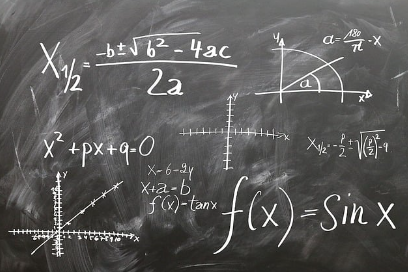 X₁/₂ = (-b ± √(b² - 4ac)) / 2a
a = 180/π · x
y
a
x
y
x
x² + px + q = 0
X₁/₂ = -p/2 ± √((p/2)² - q)
x - 6 - 2y
x + a = b
f(x) = tanx
f(x) = Sin x
y
x